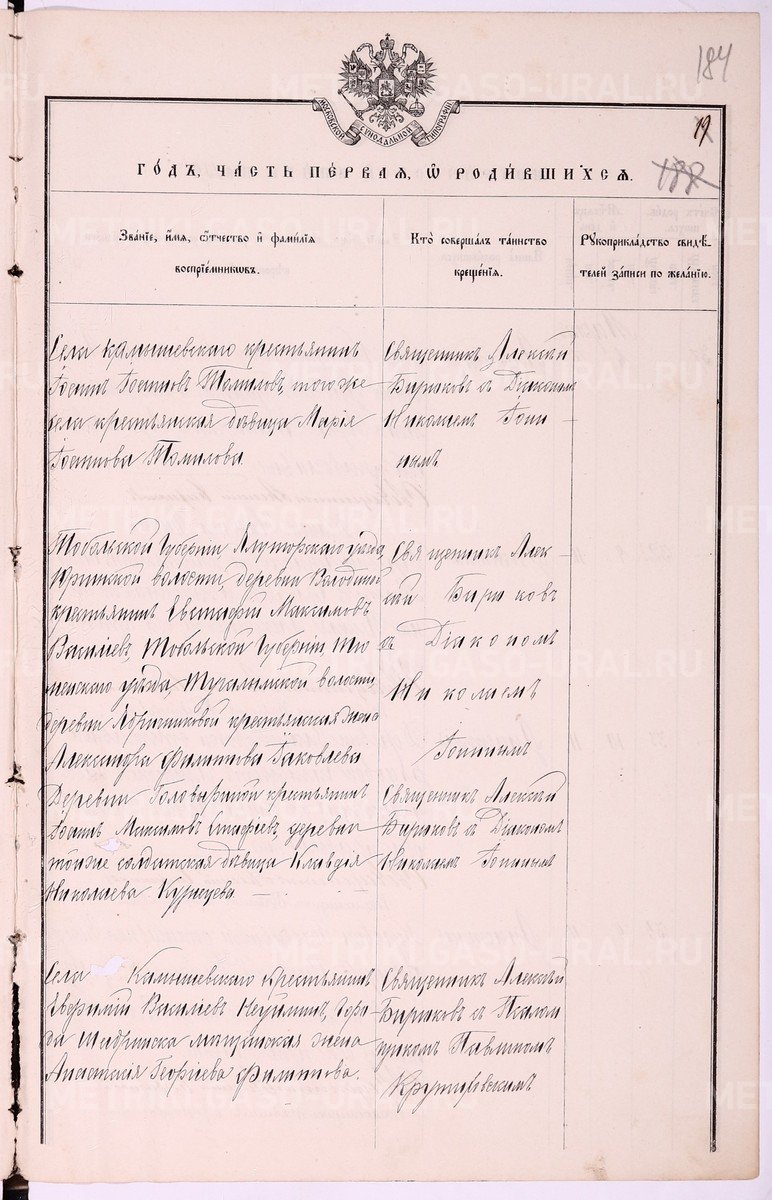 184
19
188
МОСКОВСКОЙ СѴНОДАЛЬНОЙ ТИПОГРАФІИ
ГО́ДЪ, ЧА́СТЬ ПЕ́РВАЯ, Ѡ҆ РОДИ́ВШИХСЯ.
Зва́нїе, и҆́мя, ѻ҆́тчество и҆ фами́лїя
воспрїе́мникѡвъ.
Кто̀ соверша́лъ та́инство
креще́нїя.
Рꙋкоприкла́дство свидѣ́-
телей за́писи по жела́нїю.
Села Камышевскаго крестьянинъ
Іоаннъ Іоанновъ Томиловъ, того же
села крестьянская дѣвица Марія
Іоаннова Томилова.
Священникъ Алексѣй
Бирюковъ съ Діакономъ
Николаемъ
Тобольской Губерніи Ялуторскаго уѣзда,
волости, деревни
крестьянинъ Евстафій Максимовъ
Василіевъ, Тобольской Губерніи Тю-
менскаго уѣзда, Тугулымской волости,
деревни крестьянская жена
Александра Филиппова Іаковлева
Священникъ Алек-
сѣй Бирюковъ
съ Діакономъ
Николаемъ
Деревни Головыриной крестьянинъ
Іоаннъ Максимовъ деревни
той же солдатская дѣвица Клавдія
Николаева
Священникъ Алексѣй
Бирюковъ съ Діакономъ
Николаемъ
Села Камышевскаго крестьянинъ
Евфимій Василіевъ Неуйминъ, Горо-
да Шадринска мѣщанская жена
Анастасія Георгіева Филиппова.
Священникъ Алексѣй
Бирюковъ съ Псалом-
щикомъ Павлиномъ